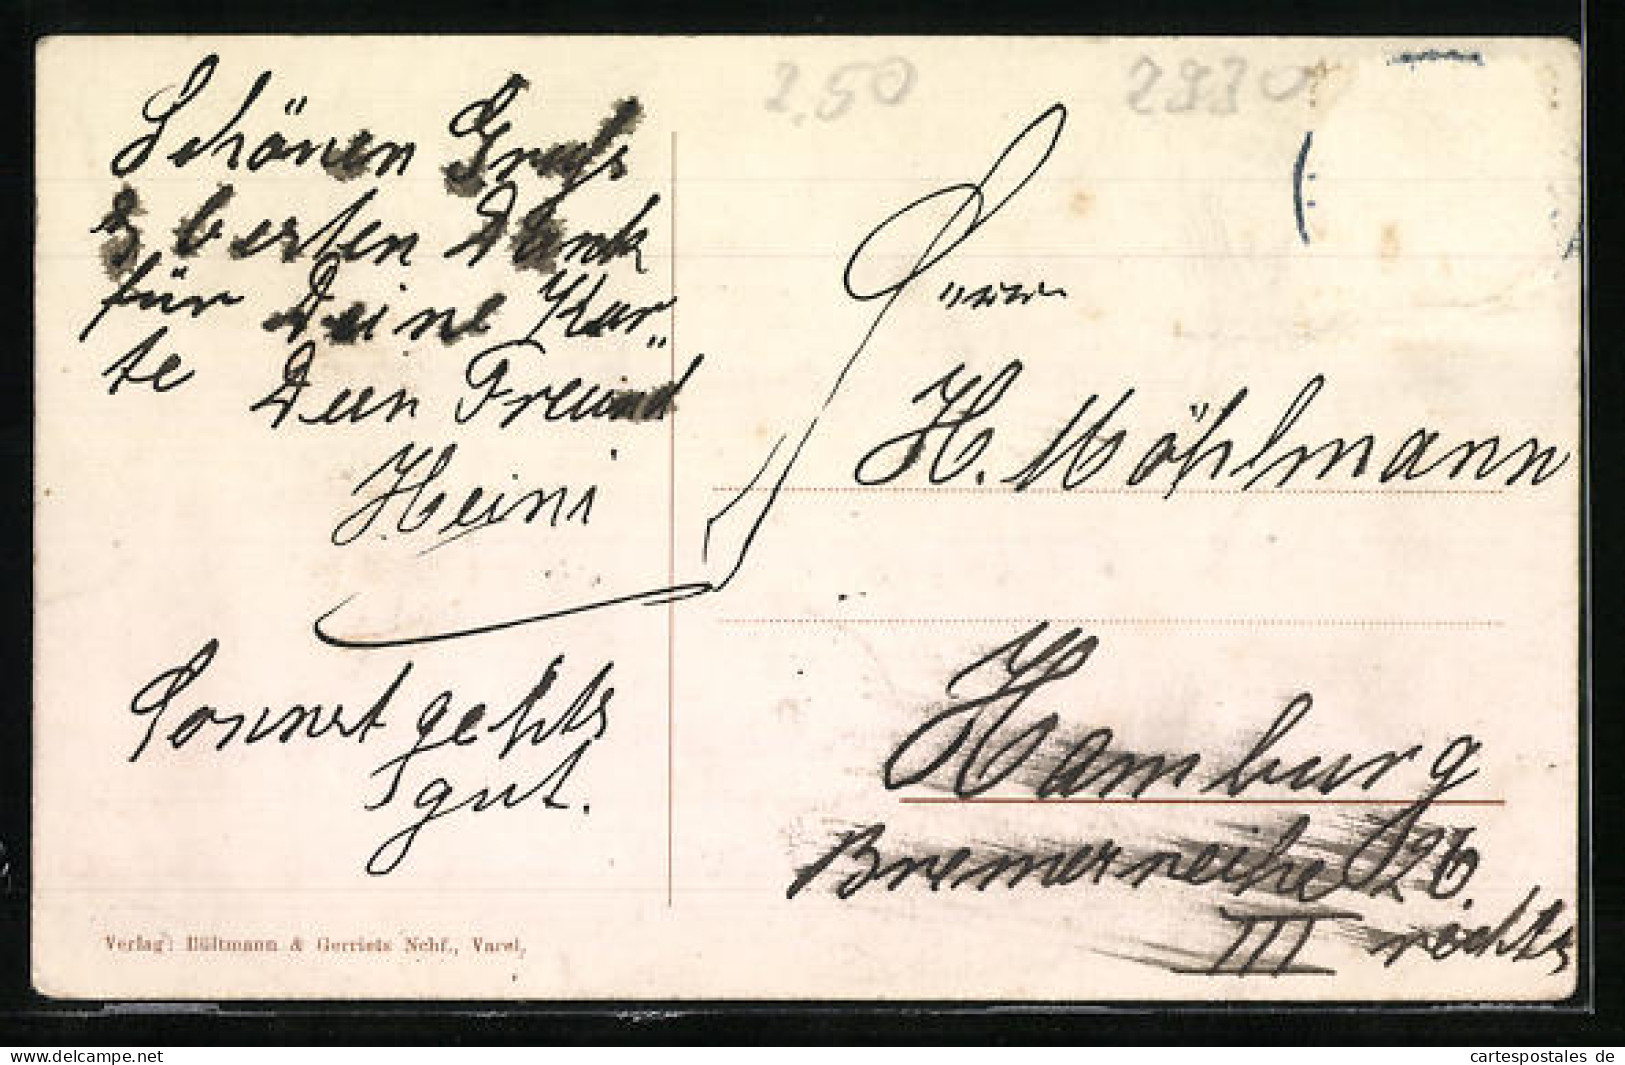 2,50
2930
Schönen Gruß
& besten Dank
für Deine Kar-
te
Dein Freund
Heini
Sonnst gehts
gut.
Herrn
H. Möhlmann
Hamburg
Bremerreihe 26.
III rechts
Verlag: Bültmann & Gerriets Nchf., Varel,
www.delcampe.net
cartespostales de